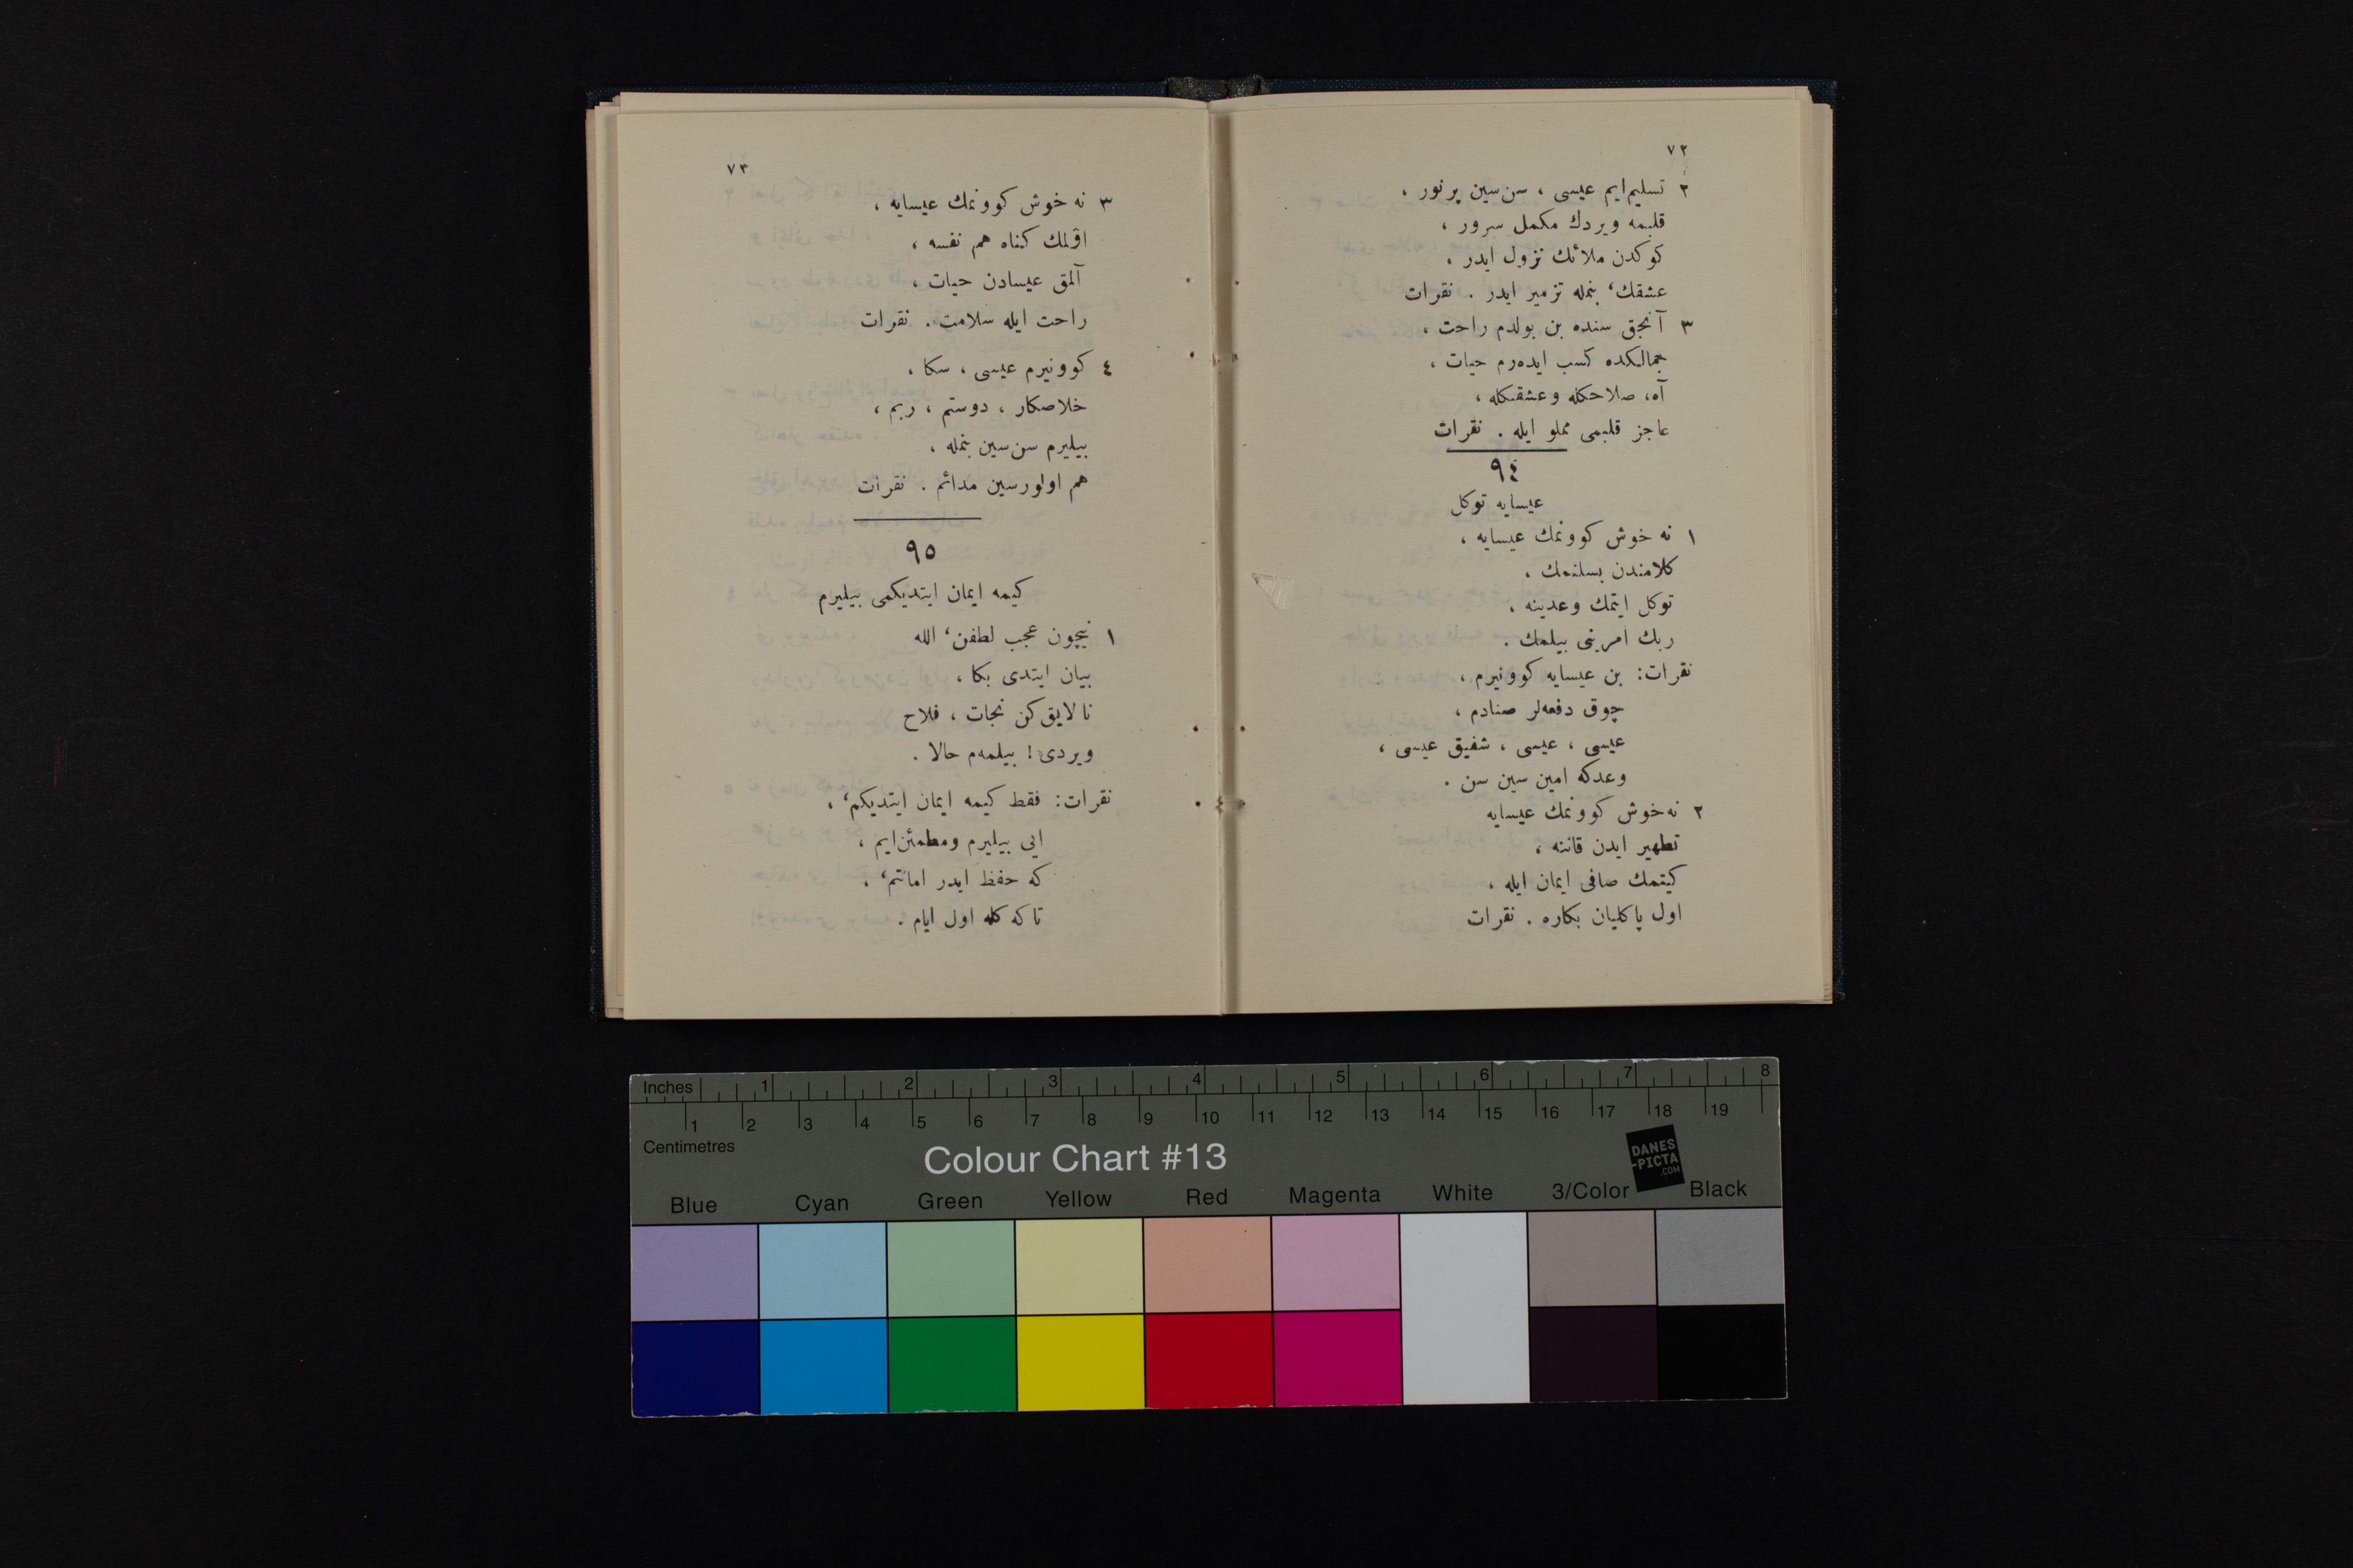 ٧٢
٢ تسليم‌ايم عيسى ، سن‌سين پرنور ،
قلبمه ويردك مكمل سرور ،
كوكدن ملائك نزول ايدر ،
عشقك، بنمله تزمير ايدر . نقرات
٣ آنجق سنده بن بولدم راحت ،
جمالكده كسب ايده‌رم حيات ،
آه، صلاحكله وعشقكله ،
عاجز قلبمى مملو ايله . نقرات
٩٤
عيسايه توكل
١ نه خوش كوونمك عيسايه ،
كلامندن بسلنمك ،
توكل ايتمك وعدينه ،
ربك امرينى بيلمك .
نقرات: بن عيسايه كوونيرم ،
چوق دفعه‌لر صنادم ،
عيسى ، عيسى ، شفيق عيسى ،
وعدكه امين سين سن .
٢ نه خوش كوونمك عيسايه
تطهير ايدن قاننه ،
كيتمك صافى ايمان ايله ،
اول پاكليان بكاره . نقرات
٧٣
٣ نه خوش كوونمك عيسايه ،
اۋلمك كناه هم نفسه ،
آلمق عيسادن حيات ،
راحت ايله سلامت . نقرات
٤ كوونيرم عيسى ، سكا ،
خلاصكار ، دوستم ، ربم ،
بيليرم سن‌سين بنمله ،
هم اولورسين مدائم . نقرات
٩٥
كيمه ايمان ايتديكمى بيليرم
١ نيچون عجب لطفن، الله
بيان ايتدى بكا ،
نالايق‌كن نجات ، فلاح
ويردى! بيلمه‌م حالا .
نقرات: فقط كيمه ايمان ايتديكم، ،
ايى بيليرم ومطمئن‌ايم ،
كه حفظ ايدر امانتم، ،
تاكه كله اول ايام .
Inches 1 2 3 4 5 6 7 8
1 2 3 4 5 6 7 8 9 10 11 12 13 14 15 16 17 18 19
Centimetres
Colour Chart #13
DANES
-PICTA
.COM
Blue Cyan Green Yellow Red Magenta White 3/Color Black